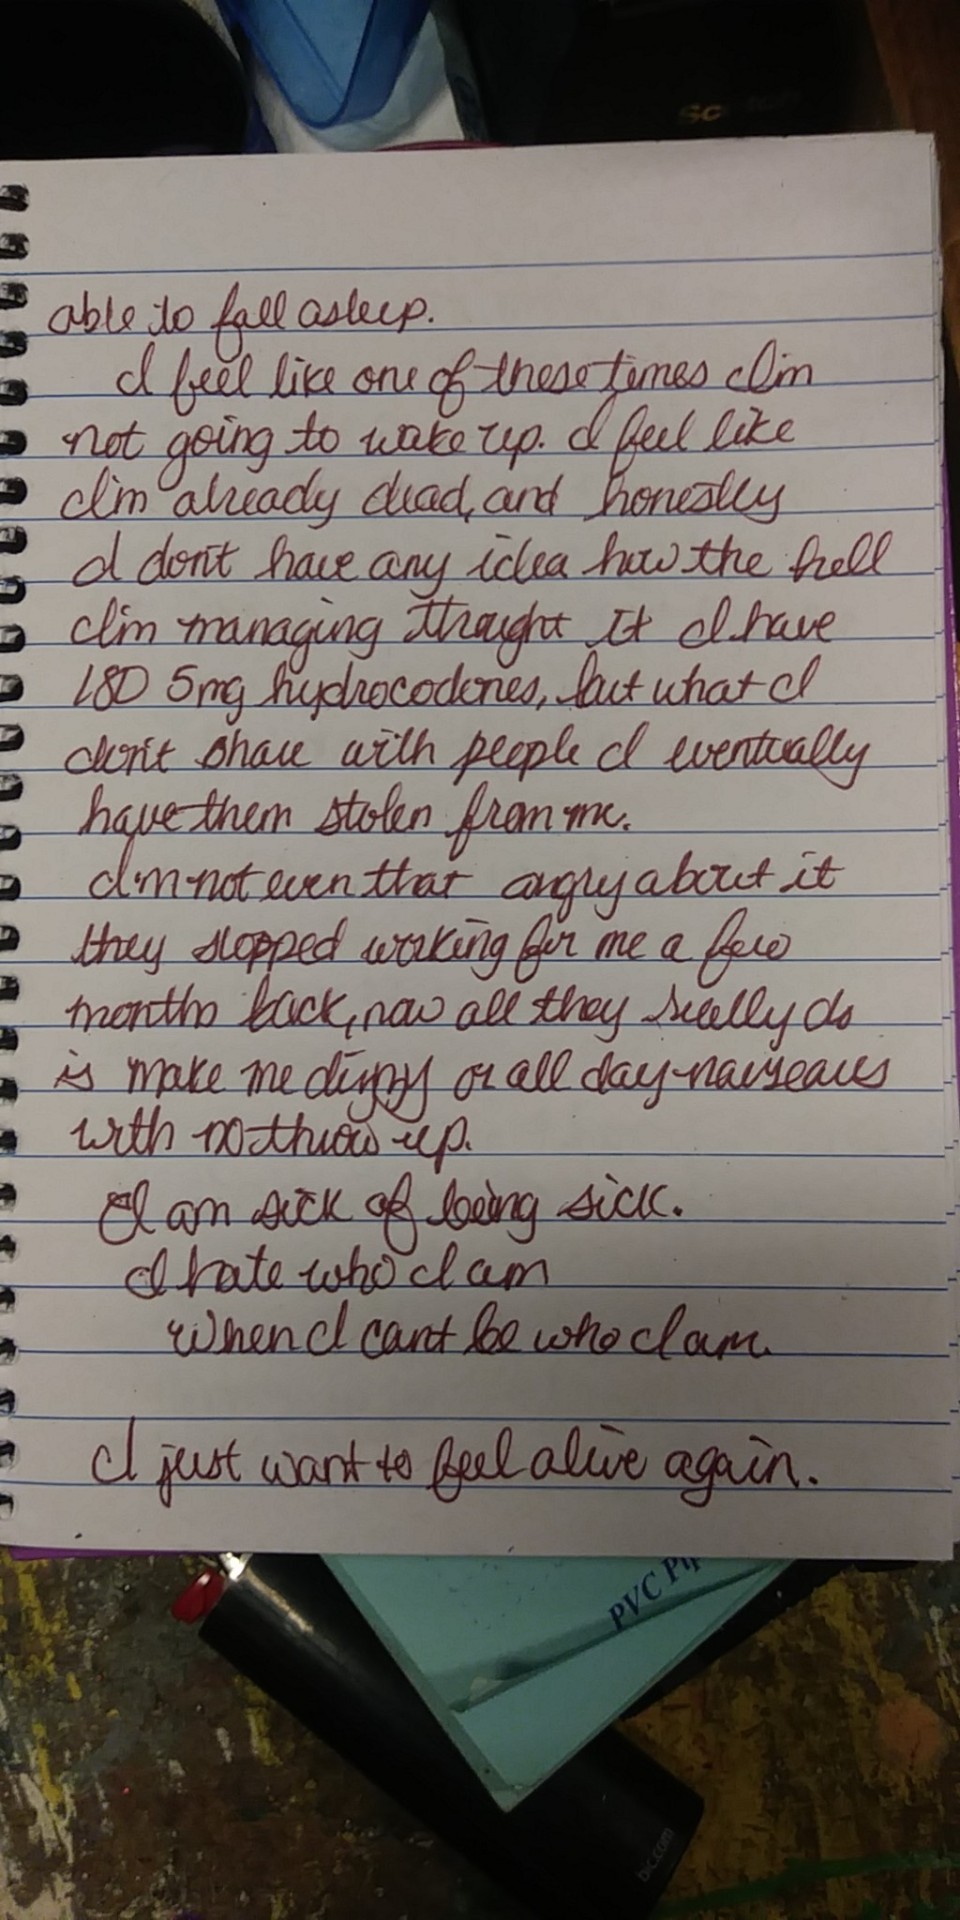 Sc
able to fall asleep.
I feel like one of these times I'm
not going to wake up. I feel like
I'm already dead, and honestly
I don't have any idea how the hell
I'm managing throught it I have
180 5mg hydrocodones, but what I
don't share with people I eventually
have them stolen from me.
I'm not even that angry about it
they stopped working for me a few
months back, now all they really do
is make me dizzy or all day-nauseaus
with no throw up.
I am sick of being sick.
I hate who I am
When I cant be who I am.
I just want to feel alive again.
PVC Pip
bic.com